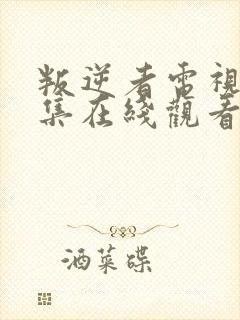 叛逆者電視
集在綫觀看
酒菜碟